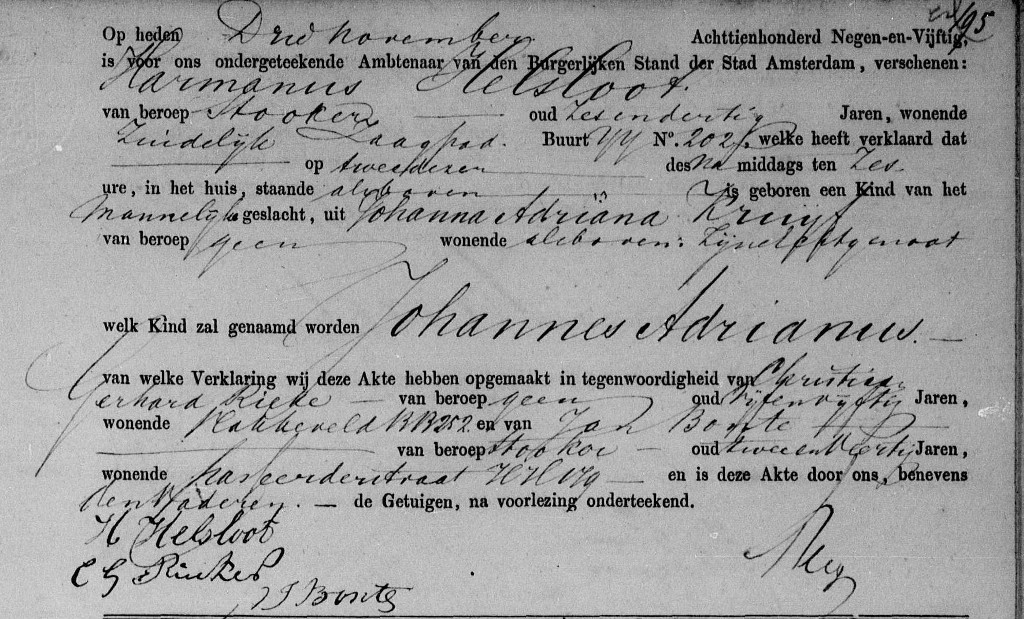 195
Op heden Drie november Achttienhonderd Negen-en-Vijftig,
is voor ons ondergeteekende Ambtenaar van den Burgerlijken Stand der Stad Amsterdam, verschenen:
Harmanus Helsloot.
van beroep Stooker oud Zesendertig Jaren, wonende
Zuidelijk Zaagpad. Buurt YY No. 202 welke heeft verklaard dat
op tweedezer des Na middags ten Zes
ure, in het huis, staande alsboven is geboren een Kind van het
Mannelijk geslacht, uit Johanna Adriana Kruijf
van beroep geen wonende alsboven: Zijne Echtgenoot
welk Kind zal genaamd worden Johannes Adrianus. —
van welke Verklaring wij deze Akte hebben opgemaakt in tegenwoordigheid van Christiaan
Gerhard — van beroep geen oud Vijfenvijftig Jaren,
wonende Kattegeld en van Jan Bonte
van beroep Stooker — oud tweeenveertig Jaren,
wonende — en is deze Akte door ons, benevens
den Vader en — de Getuigen, na voorlezing onderteekend.
H Helsloot
C G
J Bonte